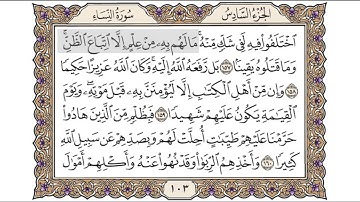 الجزء السادس
سورة النساء
اختلفوا فيه لفي شك منه ما لهم به من علم إلا اتباع الظن
وما قتلوه يقينا ١٥٧ بل رفعه الله إليه وكان الله عزيزا حكيما
١٥٨ وإن من أهل الكتاب إلا ليؤمنن به قبل موته ويوم
القيمة يكون عليهم شهيدا ١٥٩ فبظلم من الذين هادوا
حرمنا عليهم طيبت أحلت لهم وبصدهم عن سبيل الله
كثيرا ١٦٠ وأخذهم الربوا وقد نهوا عنه وأكلهم أمول
١٠٣